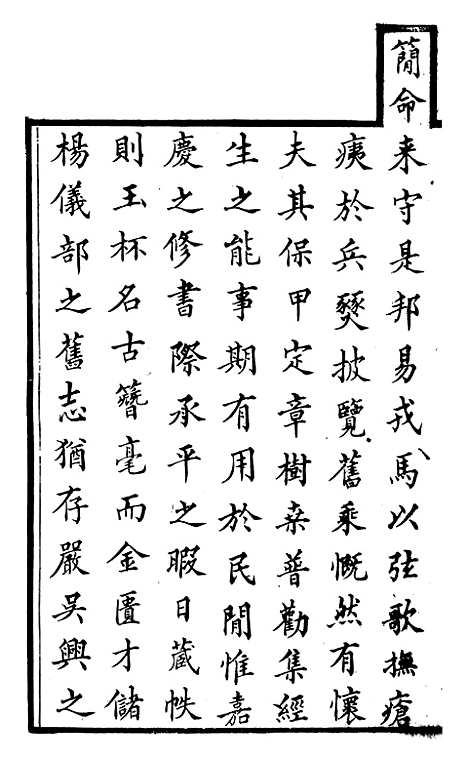 簡命来守是邦易戎馬以弦歌撫瘡
痍於兵燹披覽舊乘慨然有懷
夫其保甲定章樹桒普勸集經
生之能事期有用於民間惟嘉
慶之修書際承平之暇日蔵帙
則玉杯名古簪毫而金匱才儲
楊儀部之舊志猶存嚴吳興之